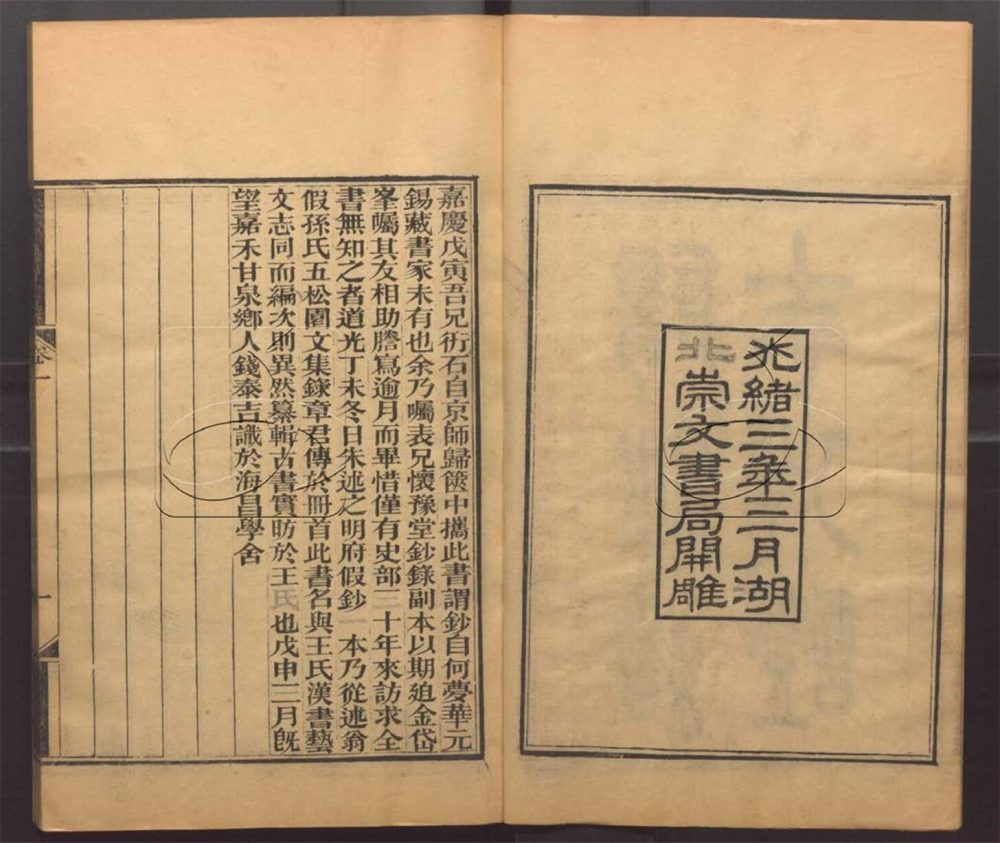 光緒三年三月湖
北崇文書局開雕
嘉慶戊寅吾兄衎石自京師歸篋中攜此書謂鈔自何夢華元
錫藏書家未有也余乃囑表兄懷豫堂鈔錄副本以期迫金岱
峯囑其友相助謄寫逾月而畢惜僅有史部三十年來訪求全
書無知之者道光丁未冬日朱述之明府假鈔一本乃從述翁
假孫氏五松園文集錄章君傳於冊首此書名與王氏漢書藝
文志同而編次則異然纂輯古書實昉於王氏也戊申三月旣
望嘉禾甘泉鄉人錢泰吉識於海昌學舍
卷一
一